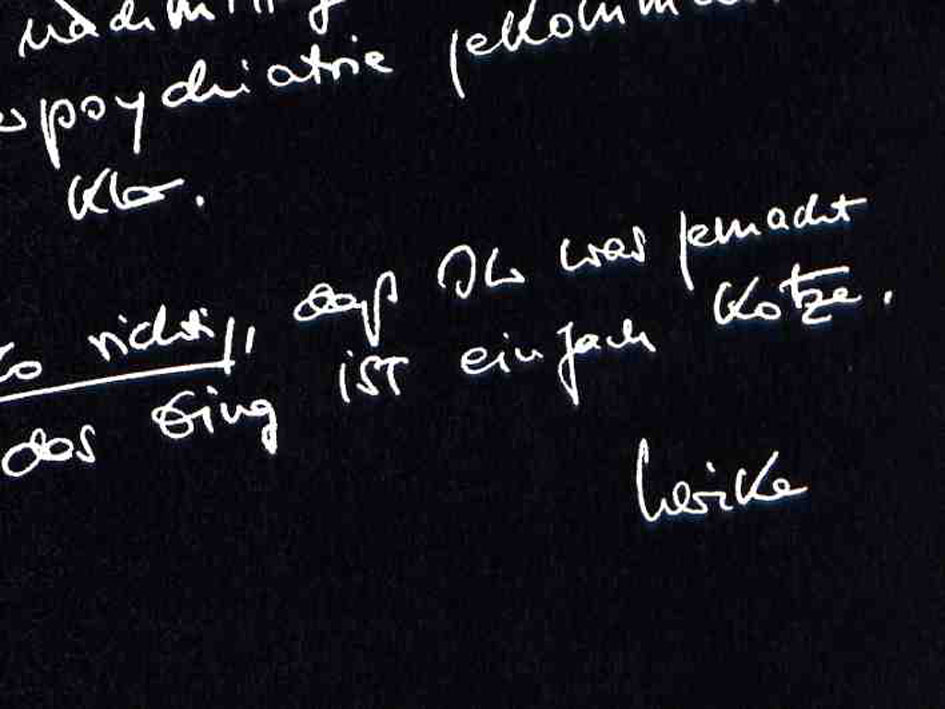 psychiatrie gekomm
klar.
so richtig, daß Ihr was gemacht
das Ding ist einfach Kotze.